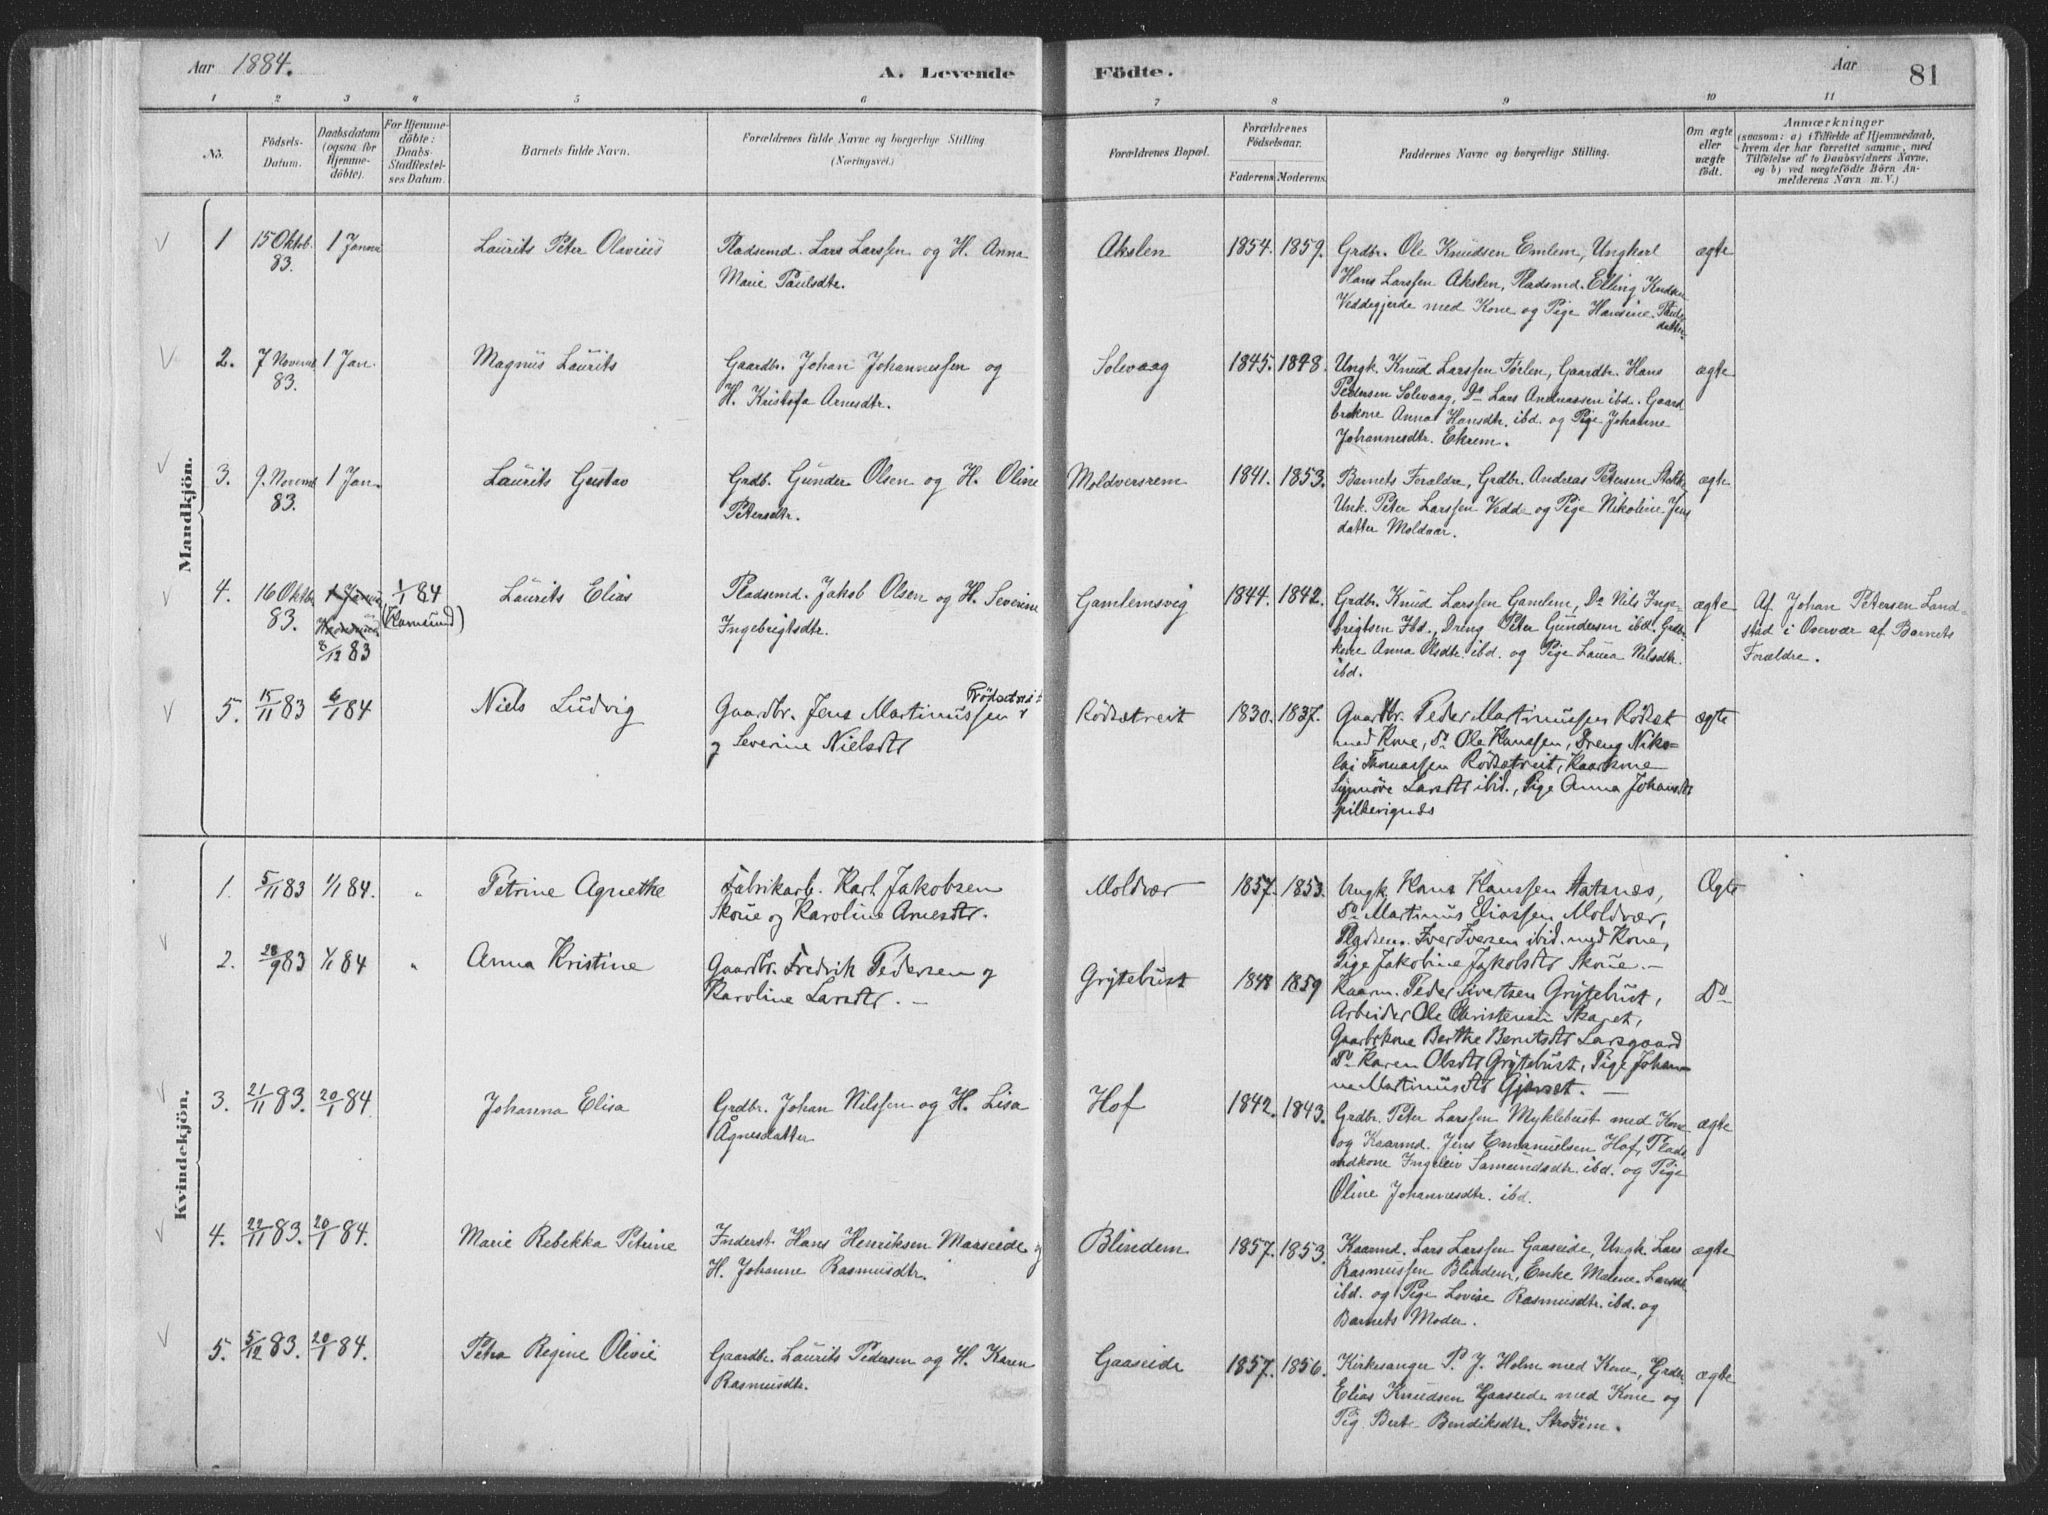 Aar 1884.
A. Levende Födte.
Aar
81
1 2 3 4 5 6 7 8 9 10 11
No.
Födsels-
Datum.
Daabsdatum
(ogsaa for
Hjemme-
döbte).
For Hjemme-
döbte:
Daabs-
Stadfæstel-
ses Datum.
Barnets fulde Navn.
Forældrenes fulde Navne og borgerlige Stilling
(Næringsvei.)
Forældrenes Bopæl.
Forældrenes
Födselsaar.
Faderens. Moderens.
Faddernes Navne og borgerlige Stilling.
Om ægte
eller
uægte
födt.
Anmærkninger
(saasom: a) i Tilfælde af Hjemmedaab,
hvem der har forrettet samme, med
Tilföielse af to Daabsvidners Navne,
og b) ved uægtefödte Börn An-
melderens Navn m. V.)
Mandkjön.
1 15 Oktob. 83. 1 Janua
Laurits Peter Olavius
Pladsemd. Lars Larssen og H. Anna
Marie Paulsdtr.
Akslen 1854. 1859.
Grdbr. Ole Knudsen Emlem, Ungkarl
Hans Larssen Akslen, Pladsmd. Elling Knudsen
Veddegjerde med Kone og Pige Hansine Pauls-
datter.
ægte
2. 7 Novemb. 83. 1 Jan.
Magnus Laurits
Gaardbr. Johan Johannessen og
H. Kristofa Arnesdtr.
Solevaag 1845. 1848.
Ungk. Knud Larssen Törlen, Gaardbr. Hans
Pedersen Solevaag, Do Lars Andreassen ibd. Gaard-
brkone Anna Hansdtr. ibd. og Pige Johanne
Johannesdtr. Ekrem.
ægte
3. 9. Novemb 83. 1 Jan.
Laurits Gustav
Grdb. Gunder Olsen og H. Oline
Petersdtr.
Moldversrem 1841. 1853.
Barnets Forældre, Grdbr. Andreas Petersen
Unk. Peter Larssen Vedde og Pige Nikoline Jens
datter Moldvær.
ægte
4. 16 Oktbr 83. 8/12 83 1/1 84
Laurits Elias
Pladsemd. Jakob Olsen og H. Severine
Ingebrigtsdtr.
Gamlemsvig 1844. 1842.
Grdbr. Knud Larssen Gamlem, Do Nils Inge-
brigtsen Ibd., Dreng Peter Gundersen ibd. Grdbr-
kone Anna Olsdtr. ibd. og Pige Laura Nilsdtr.
ibd.
ægte
Af Johan Petersen Land-
stad i Overvær af Barnets
Forældre.
5. 15/11 83 6/1 84
Niels Ludvig
Gaardbr. Jens Martinussen Rödsetreit
og Severine Nielsdtr
Rödsetreit 1830. 1837.
Gaardbr. Peder Martinussen Rödset
med Kone, Do Ole Hanssen, Dreng Niko-
lai Thomassen Rödsetreit, Kaarkone
Synnöve Larsdtr ibid., Pige Anna Johansdtr
Spilkevignæs
ægte
Kvindekjön.
1. 5/11 83 1/1 84. "
Petrine Agnethe
Fabrikarb. Karl Jakobsen
Skoue og Karoline Arnesdtr.
Moldvær 1857. 1853.
Ungk. Hans Hanssen Aatsnæs,
Do Martinus Eliassen Moldvær,
Pladsem. Iver Iversen ibid. med Kone,
Pige Jakobine Jakobsdtr Skoue.-
Ægte
2. 28/9 83 1/1 84 "
Anna Kristine
Gaardbr. Fredrik Pedersen og
Karoline Larsdtr. -
Grytebust 1848 1859
Kaarm. Peder Sivertsen Grytebust,
Arbeider Ole Christensen Skaret,
Gaardbkone Berthe Berntsdtr Larsgaard
Do Karen Olsdtr Grytebust, Pige Johan-
ne Martinusdtr Gjerset. -
Do
3. 21/11 83. 20/1 84
Johanna Elisa
Grdbr. Johan Nilssen og H. Lisa
Agnesdatter
Hof 1842. 1843.
Grdbr. Peter Larssen Myklebust med Kone
og Kaarmd. Jens Emanuelsen Hof, Plads
mdkone Ingeleiv Samundsdtr. ibd. og Pige
Oline Johannesdtr. ibd.
ægte
4. 22/11 83. 20/1 84.
Marie Rebekka Petrine
Inderst Hans Henriksen Marseide og
H. Johanne Rasmusdtr.
Blindem 1857. 1853.
Kaarmd. Lars Larssen Gaaseide, Ungk. Lars
Rasmussen Blindem, Enke Malene Larsdtr.
ibd. og Pige Lovise Rasmusdtr. ibd. og
Barnets Moder.
ægte
5. 5/12 83. 20/1 84.
Petra Regine Olivie
Gaardbr. Laurits Pedersen og H. Karen
Rasmusdtr.
Gaaseide 1857. 1856.
Kirkesanger P. J. Holm med Kone, Grdbr.
Elias Knudsen Gaaseide med Kone og
Pig. Bert- Bendiksdtr.
ægte